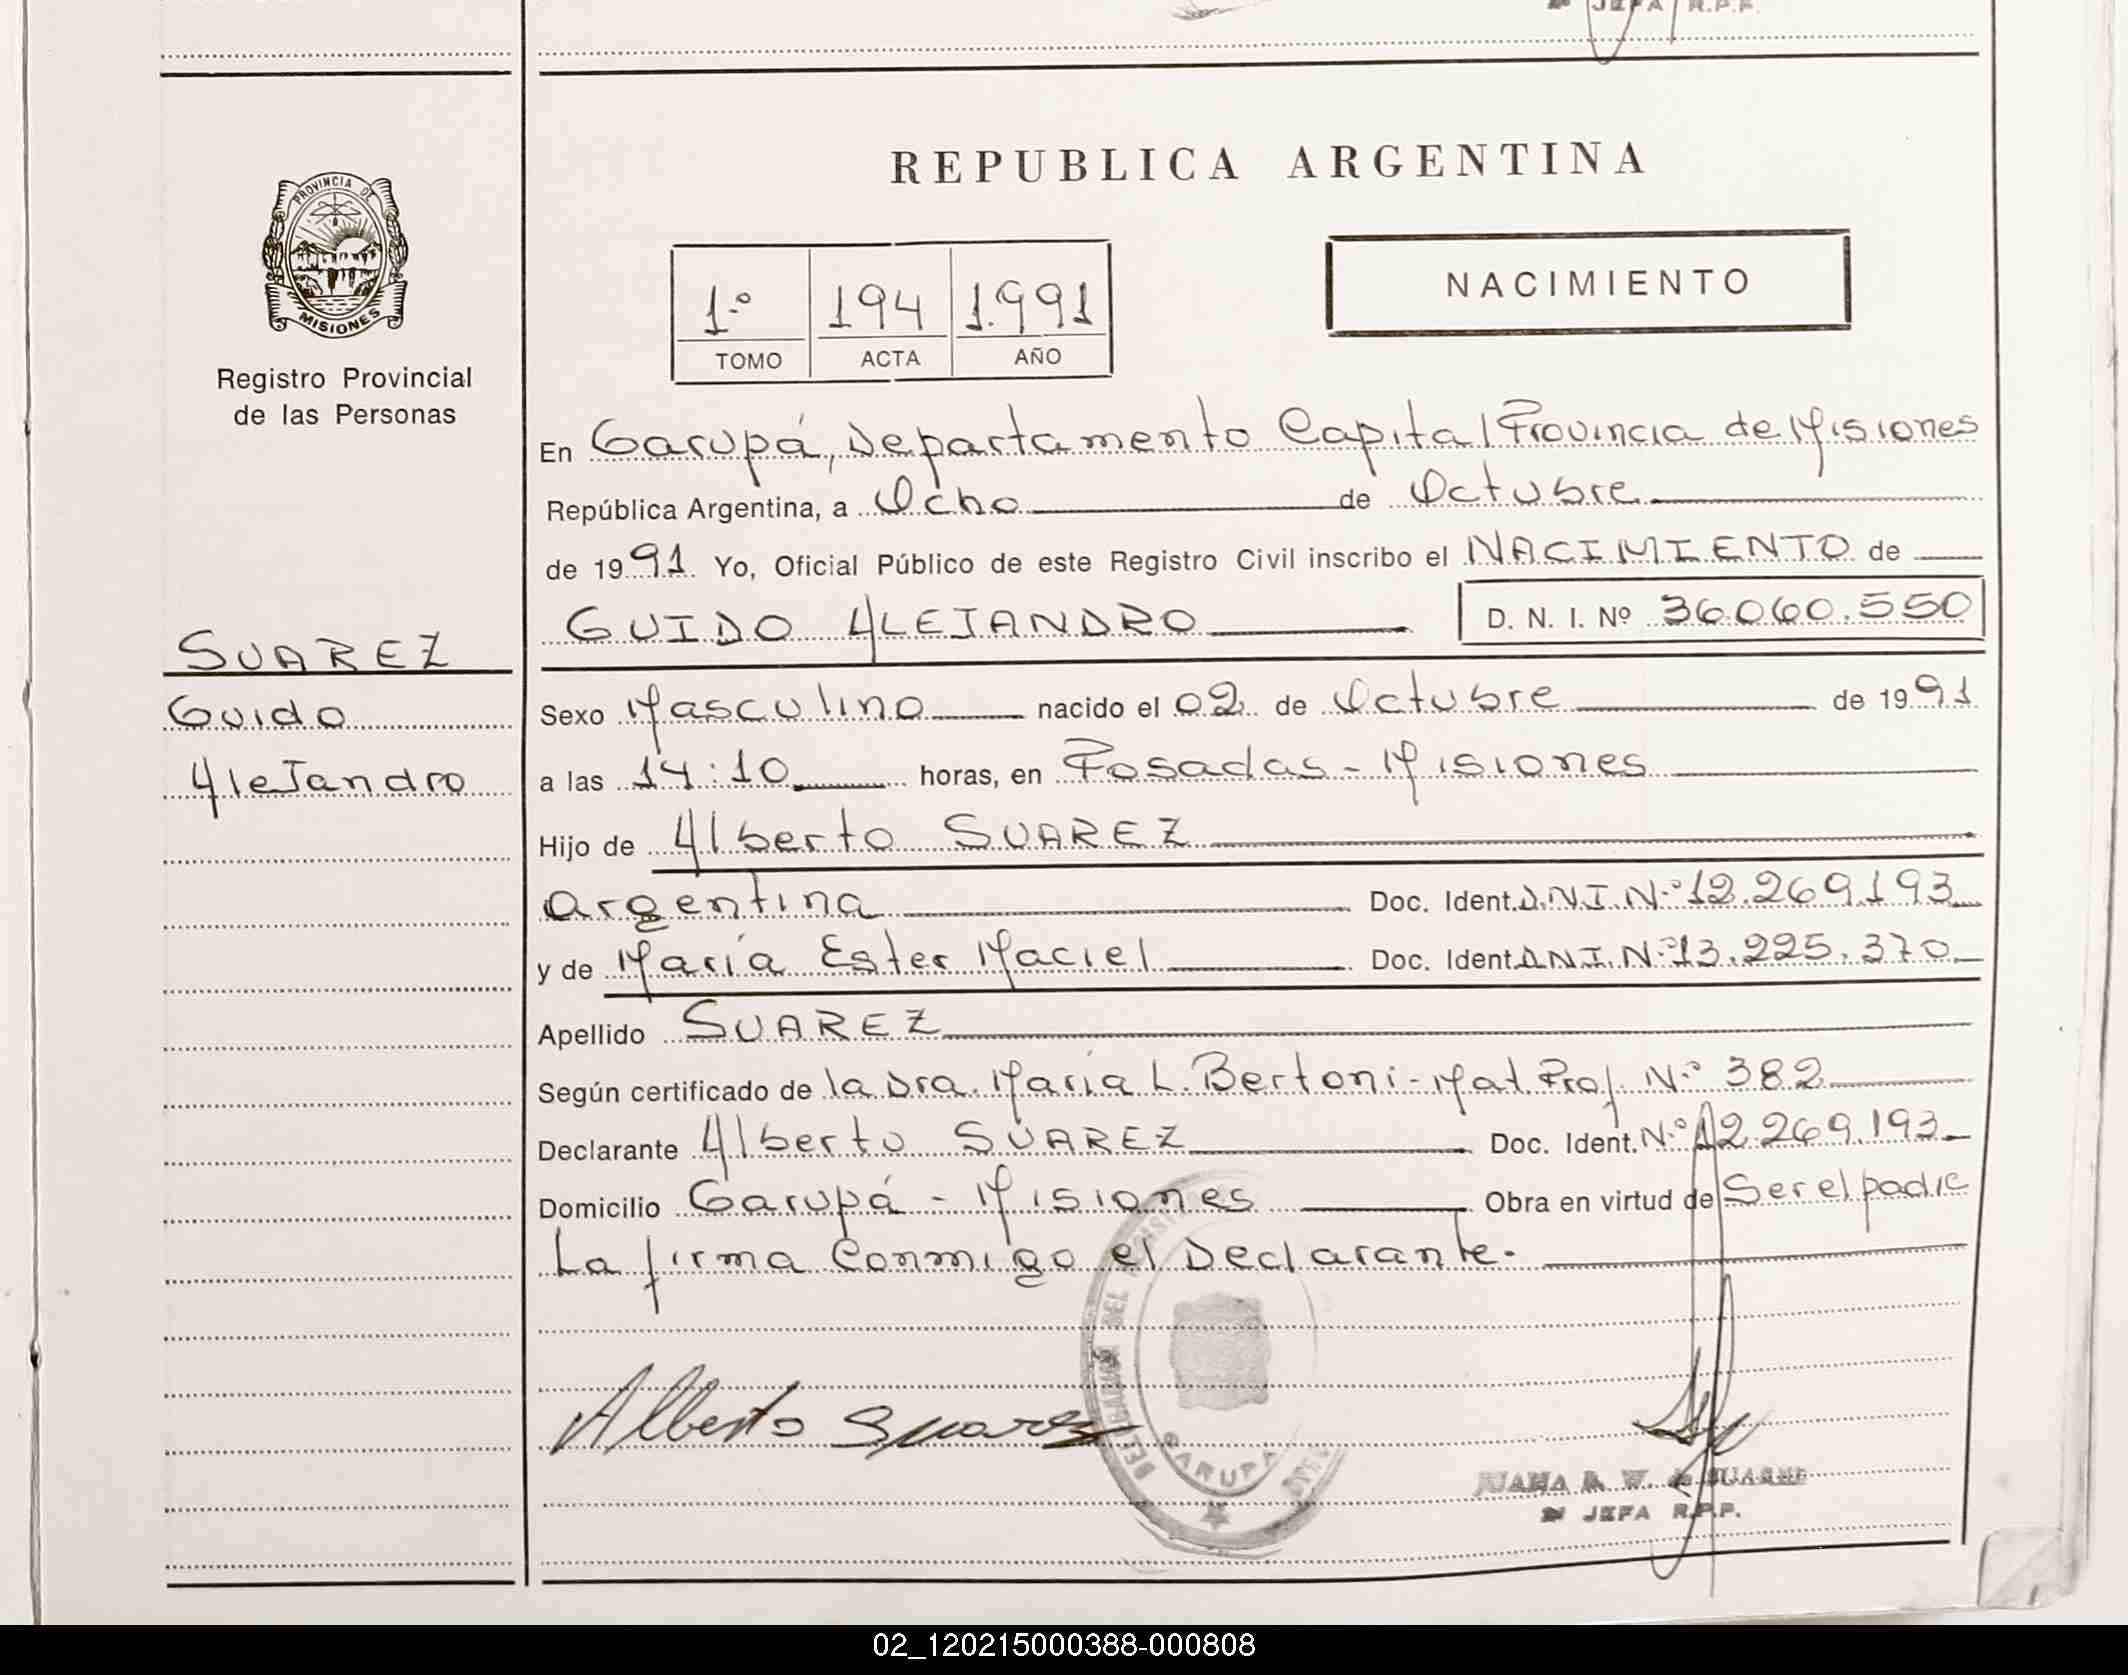 JEFA R.P.P.
PROVINCIA DE
MISIONES
Registro Provincial
de las Personas
SUAREZ
Guido
AleJandro
REPUBLICA ARGENTINA
1.º 194 1.991
TOMO ACTA AÑO
NACIMIENTO
En Garupá, Departamento Capital Provincia de Misiones
República Argentina, a Ocho de Octubre
de 1991 Yo, Oficial Público de este Registro Civil inscribo el NACIMIENTO de
GUIDO ALEJANDRO D. N. I. Nº 36.060.550
Sexo Masculino nacido el 02 de Octubre de 1991
a las 14:10 horas, en Posadas - Misiones
Hijo de Alberto SUAREZ
argentina Doc. Ident. D.N.I. N.º 12.269.193
y de María Ester Maciel Doc. Ident. D.N.I. N.º 13.225.370
Apellido SUAREZ
Según certificado de la Dra. María L. Bertoni - Mat. Prof. N.º 382
Declarante Alberto SUAREZ Doc. Ident. N.º 12.269.193
Domicilio Garupá - Misiones Obra en virtud de Ser el padre
La firma Conmigo el Declarante.
Alberto Suarez
DEL
GARUPA
JUANA W. de
JEFA R.P.P.
02_120215000388-000808